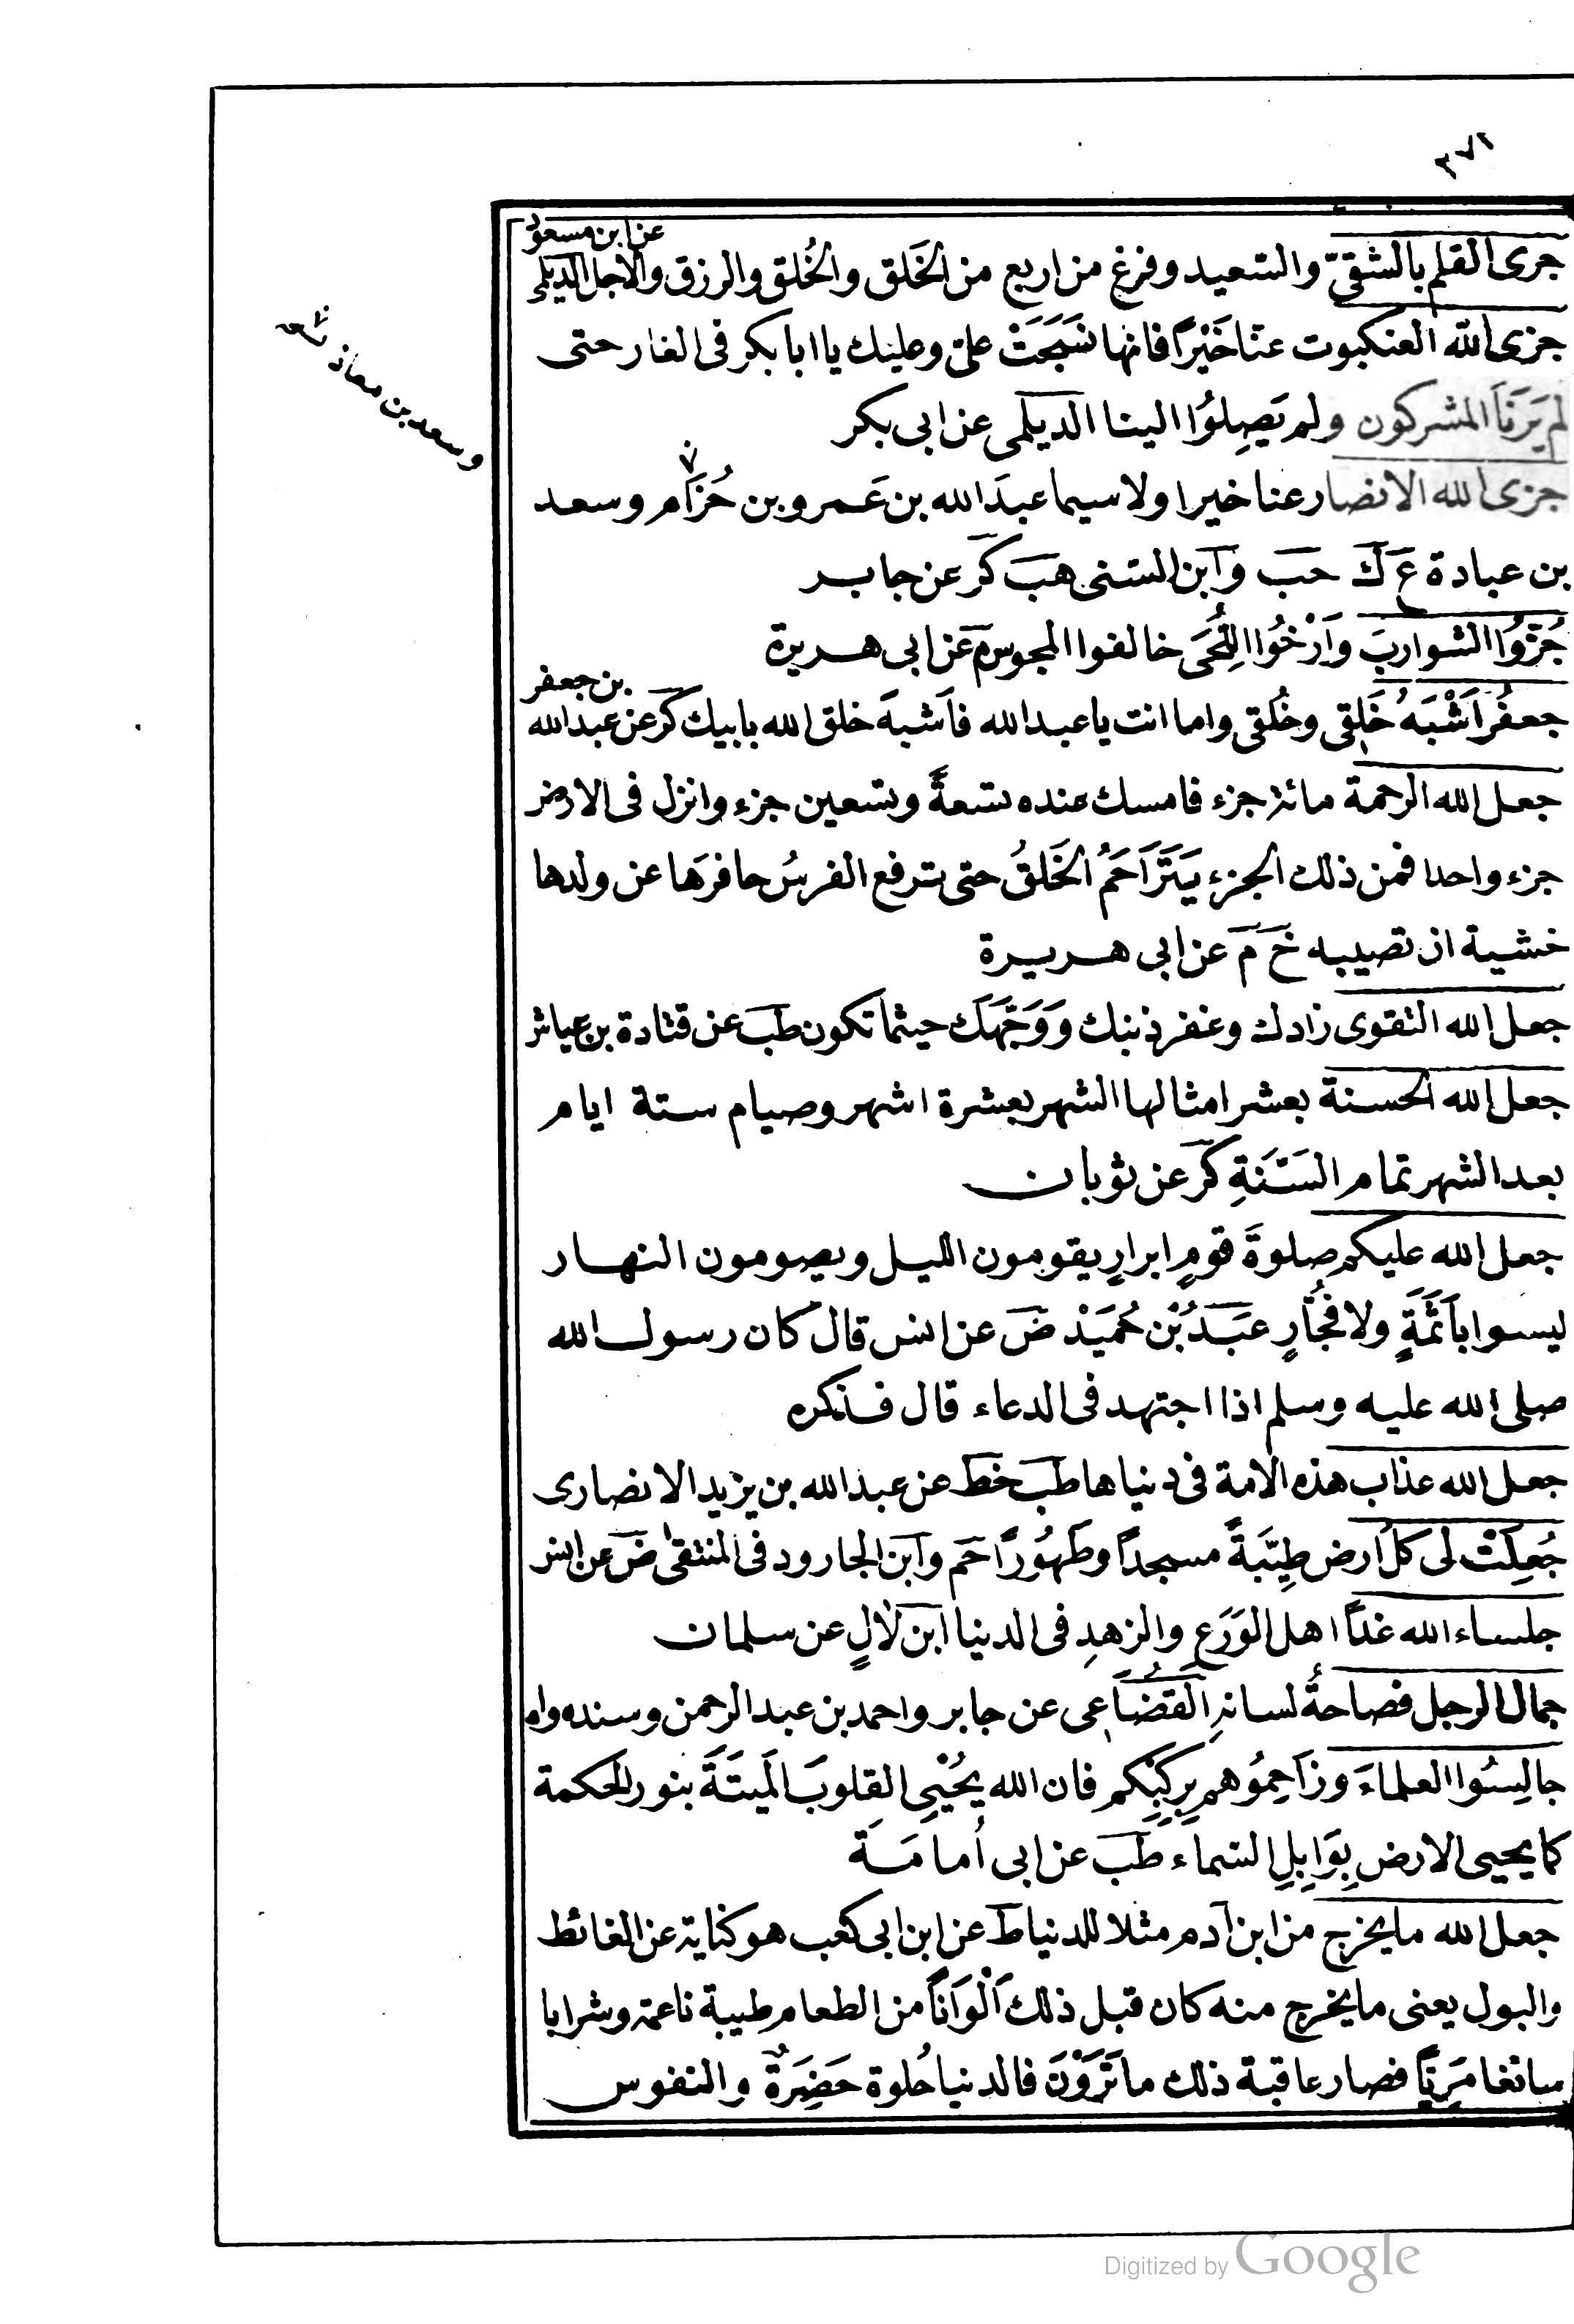 ٢٧١
عن ابن مسعود
جرى القلم بالشقيّ والسعيد وفرغ من اربع من الخَلق والخُلق والرزق والاجل الديلمى
جزى الله العنكبوت عنا خَيْراً فانها نَسَجَتْ علىّ وعليك يا ابا بكر فى الغار حتى
لم يَرَنَا المشركون ولم يَصِلُوا الينا الديلمى عن ابى بكر
جزى الله الانصار عنا خيرا ولا سيما عبدَ الله بن عَمرو بن حُزَام وسعد
وسعد بن معاذ نسخه
بن عبادة ع ك حب وابن السنى هب كر عن جابر
جُزُّوا الشواربَ وَاَرْخُوا اللُّحَى خالفوا المجوس م عن ابى هريرة
بن جعفر
جعفرُ اَشْبَهُ خَلقِى وخُلقى واما انت يا عبد الله فاَشبهَ خلق الله بابيك كر عن عبد الله
جعل الله الرحمة مائة جزء فامسك عنده تسعةً وتسعين جزء وانزل فى الارض
جزء واحدا فمن ذلك الجزء يَتَرَاحَمُ الخَلقُ حتى ترفع الفرسُ حافرَها عن ولدها
خشية ان تصيبه خ م عن ابى هريرة
جعل الله التقوى زادك وغفر ذنبك وَوَجَّهَكَ حيثما تكون طب عن قتادة بن عياش
جعل الله الحسنة بعشر امثالها الشهر بعشرة اشهر وصيام ستة ايام
بعد الشهر تمام السَّنَةِ كر عن ثوبان
جعل الله عليكم صلوةَ قومٍ ابرارٍ يقومون الليل ويصومون النهار
ليسوا باَثَمَةٍ ولا فُجَّارٍ عَبَدُ بْن حُمَيَدْ ض عن انس قال كان رسول الله
صلى الله عليه وسلم اذا اجتهد فى الدعاء قال فذكره
جعل الله عذاب هذه الامة فى دنياها طب خط عن عبد الله بن يزيد الانصارى
جُعِلَتْ لى كلُ ارض طِيّبَةً مسجداً وطَهُوراً حم وابن الجارود فى المنتقى ض عن انس
جلساء الله غداً اهل الوَرَعِ والزهدِ فى الدنيا ابن لالٍ عن سلمان
جمال الرجل فصاحةُ لسانه القُضَاعى عن جابر واحمد بن عبد الرحمن وسنده واه
جالِسُوا العلماءَ وزَاحِمُوهم بِرُكَبِكم فان الله يُحْيِى القلوبَ المَيتَةَ بنور الحكمة
كما يحيى الارض بِوَابِلِ السماء طب عن ابى اُمامَة
جعل الله ما يخرج من ابن آدم مثلا للدنيا ط عن ابن ابى كعب هو كناية عن الغائط
والبول يعنى ما يخرج منه كان قبل ذلك اَلْوَاناً من الطعام طيبة ناعمة وشرابا
سائغا مَرِيّاً فصار عاقبة ذلك ما تَرَوْنَ فالدنيا حُلوة خَضِرَةٌ والنفوس
Digitized by Google